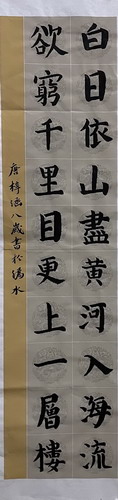 白日依山盡黃河入海流
欲窮千里目更上一層樓
八歲書於漪水